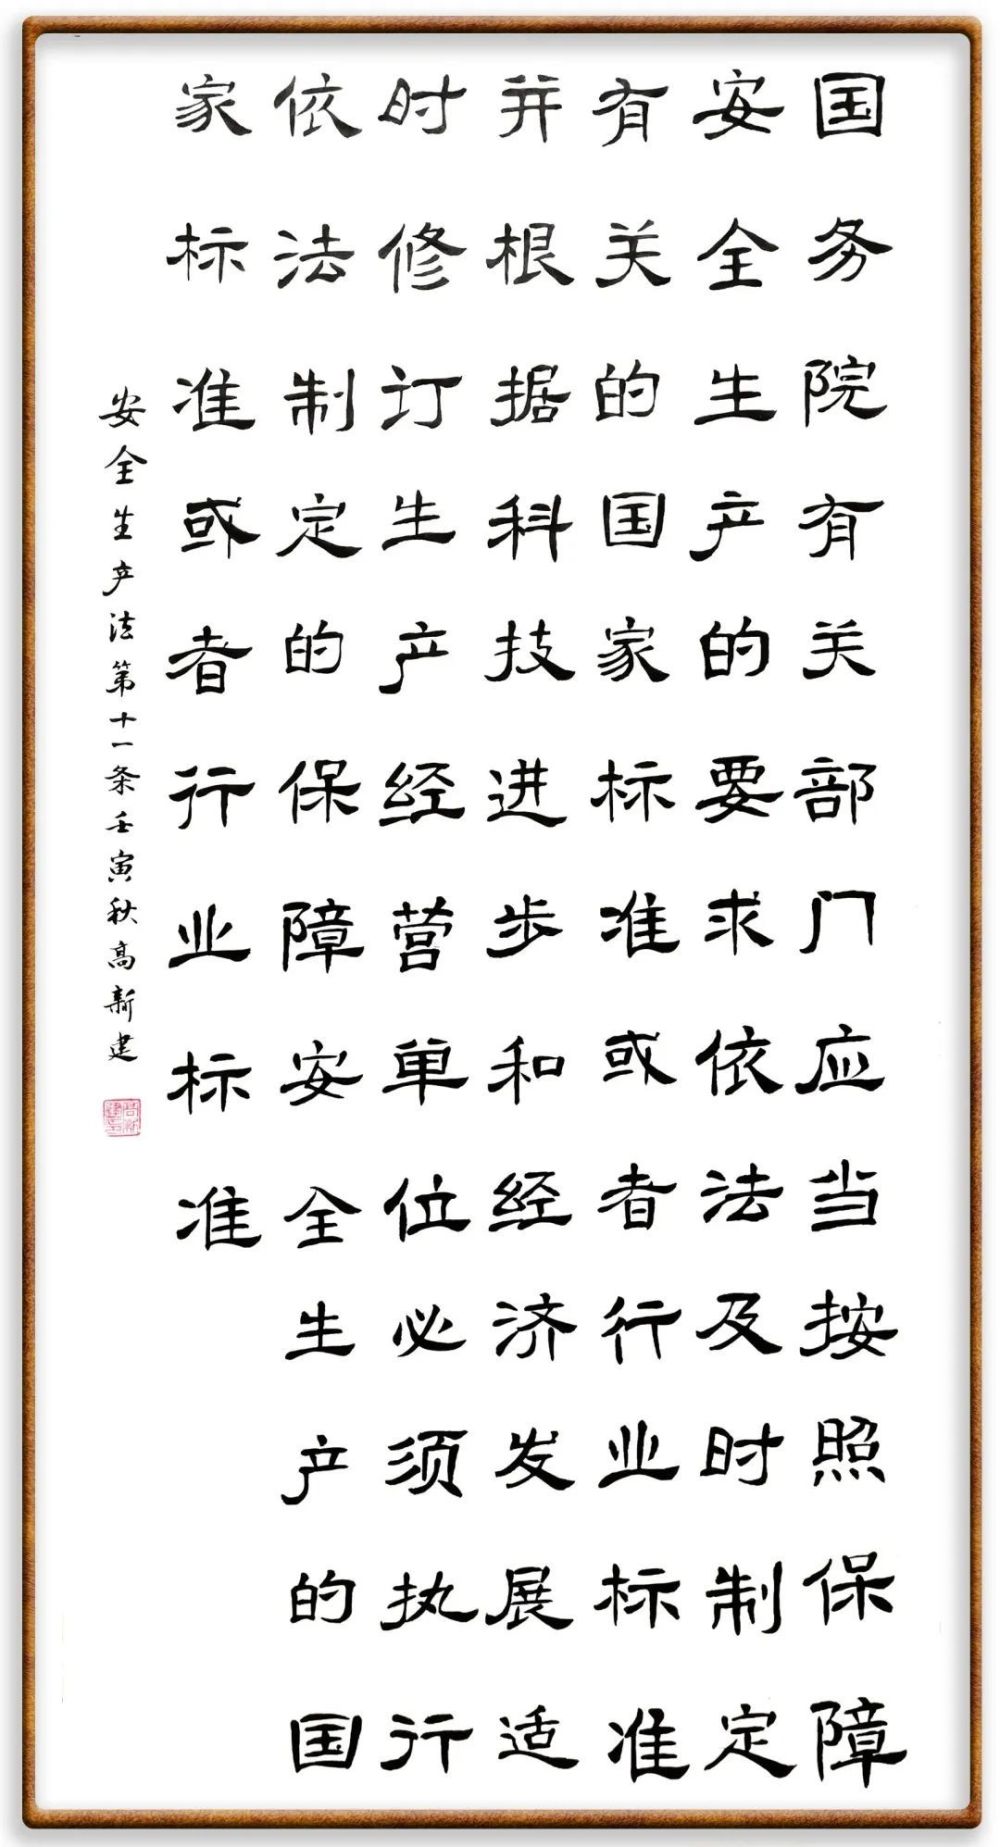 国务院有关部门应当按照保障
安全生产的要求依法及时制定
有关的国家标准或者行业标准
并根据科技进步和经济发展适
时修订生产经营单位必须执行
依法制定的保障安全生产的国
家标准或者行业标准
安全生产法第十一条壬寅秋高新建